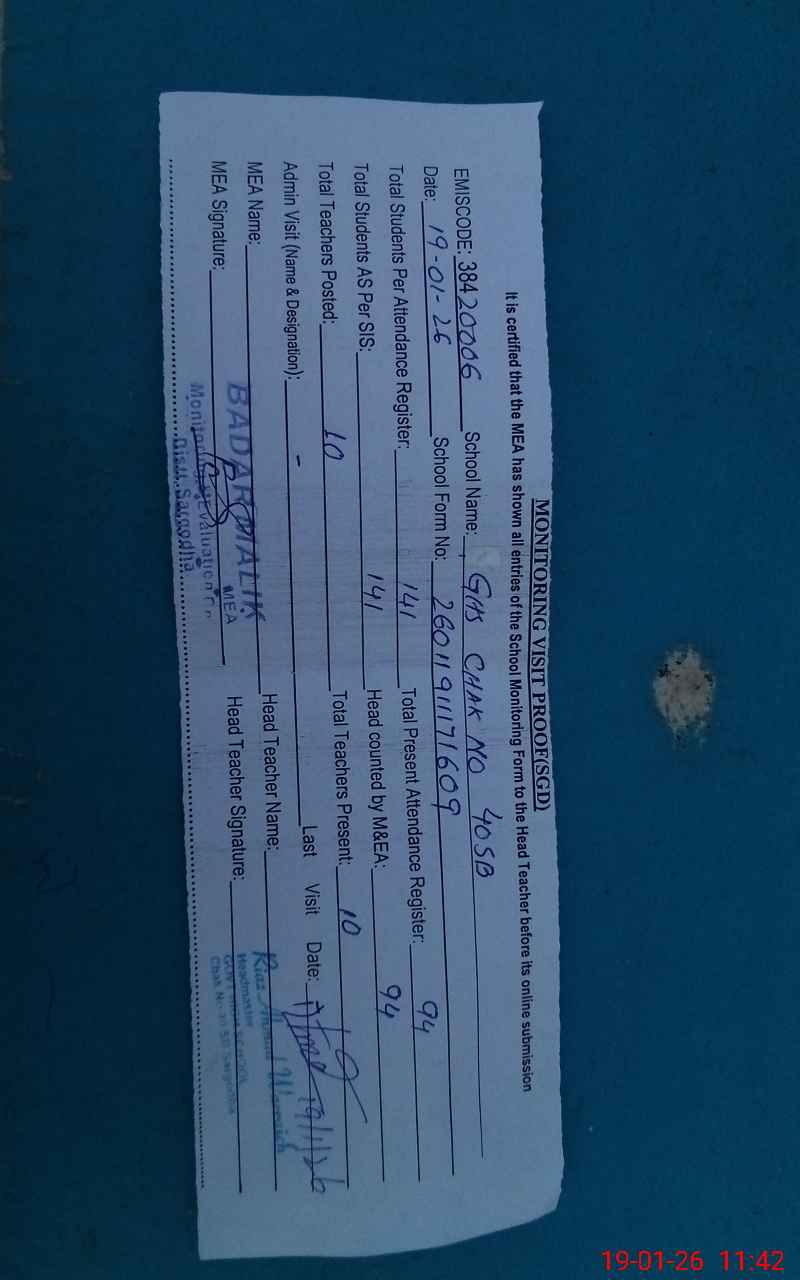 MONITORING VISIT PROOF(SGD)
It is certified that the MEA has shown all entries of the School Monitoring Form to the Head Teacher before its online submission
EMISCODE: 38420006 School Name: GHS CHAK NO 40SB
Date: 19-01-26 School Form No: 2601191171609
Total Students Per Attendance Register: 141 Total Present Attendance Register: 94
Total Students AS Per SIS: 141 Head counted by M&EA: 94
Total Teachers Posted: 10 Total Teachers Present: 10
Admin Visit (Name & Designation): - Last Visit Date: 19/1/26
MEA Name: BADAR MALIK MEA Head Teacher Name: Riaz Ahmad Warraich
MEA Signature: Monitoring & Evaluation Head Teacher Signature: Headmaster
Distt. Sargodha GOVT HIGH SCHOOL
Chak No. 40 SB Sargodha
19-01-26 11:42